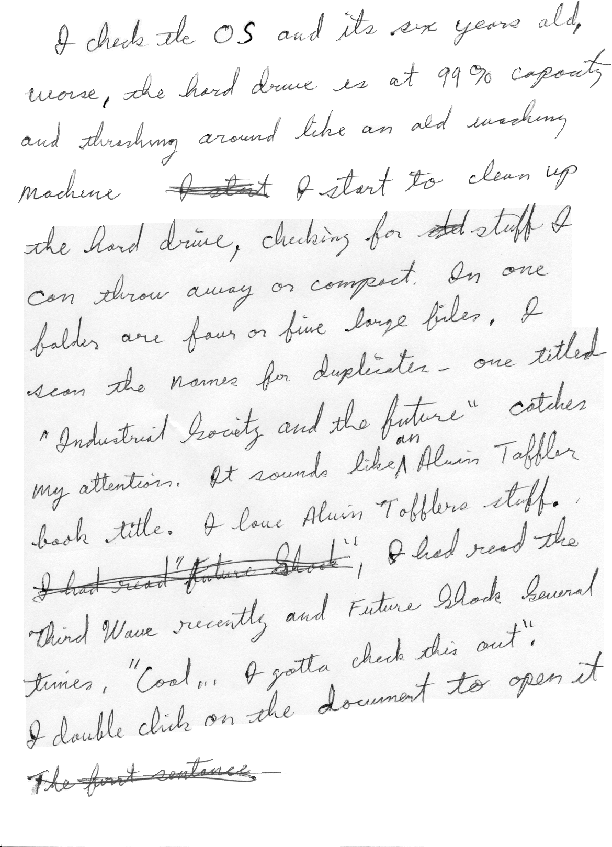 I check the OS and its six years old,
worse, the hard drive is at 99% capacity
and thrashing around like an old washing
machine I start I start to clean up
the hard drive, checking for stuff I
can throw away or compact. In one
folder are four or five large files. I
scan the names for duplicates - one titled
"Industrial Society and the future" catches
my attention. It sounds like an Alvin Toffler
book title. I love Alvin Tofflers stuff.
I had read "future Shock", I had read the
Third Wave recently and Future Shock several
times, "Cool... I gotta check this out".
I double click on the document to open it
The first sentence.